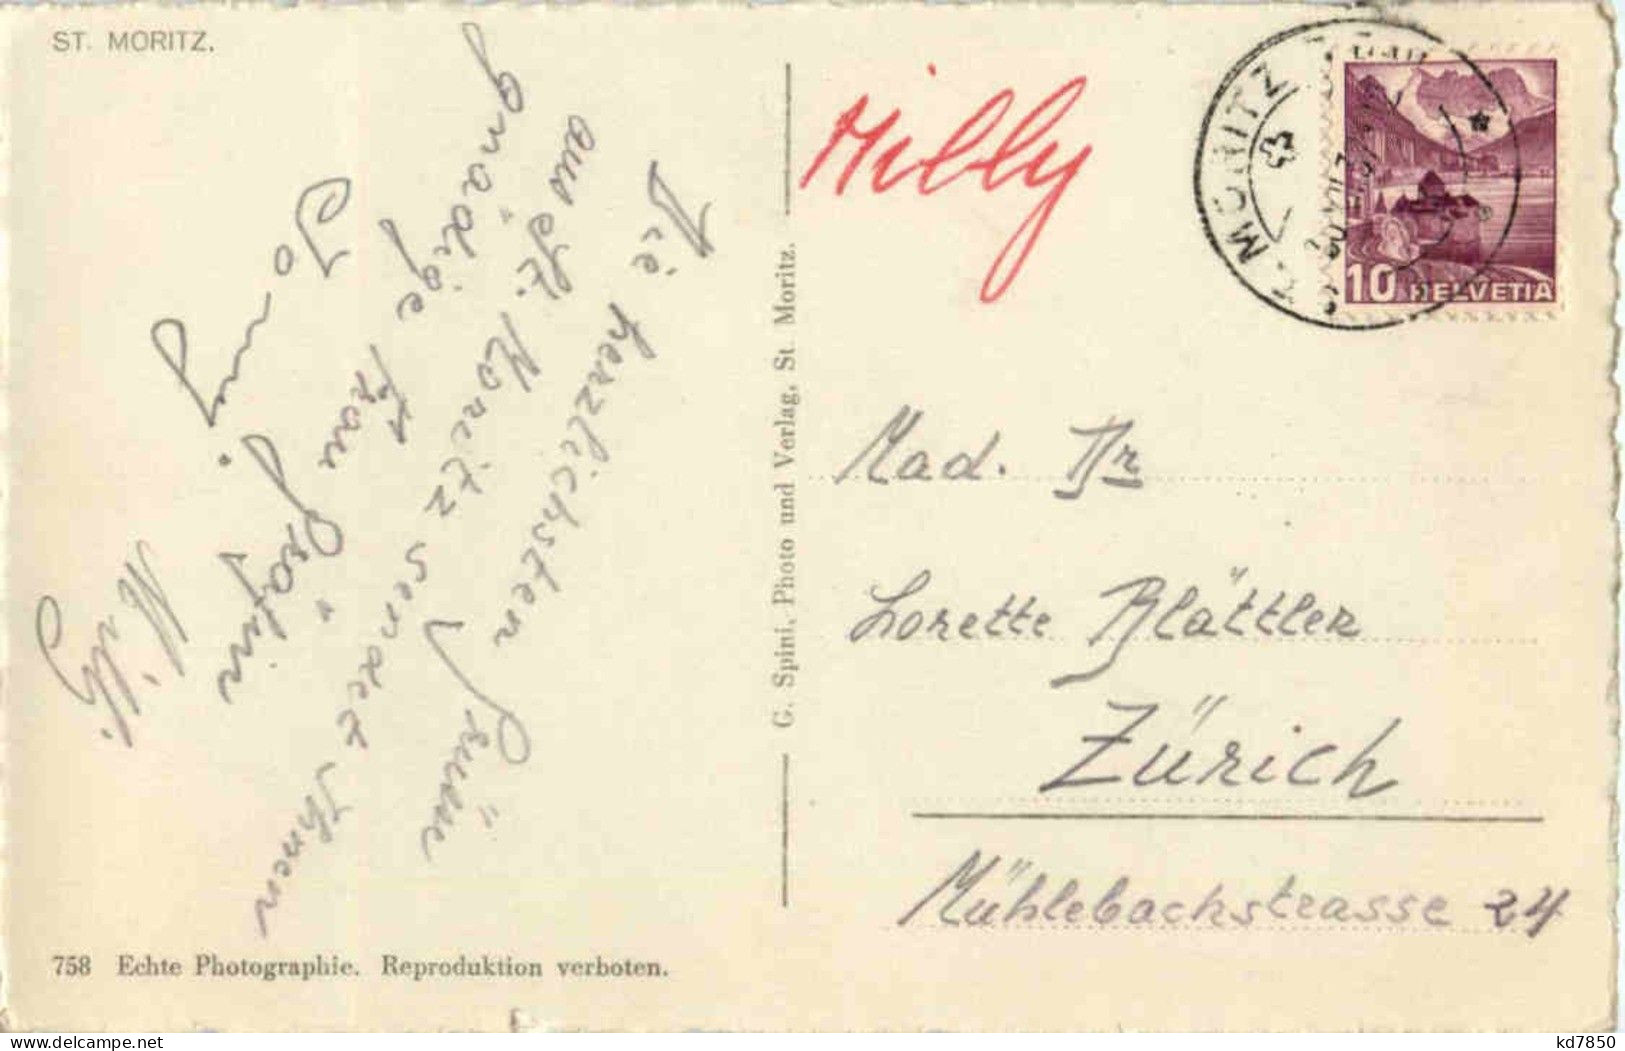 ST. MORITZ.
Die herzlichsten Grüsse
aus St. Moritz sendet Ihnen
gnädige Frau Gräfin
Milly
G. Spini, Photo und Verlag, St. Moritz.
758 Echte Photographie. Reproduktion verboten.
Milly
MORITZ
10 HELVETIA
Mad. Dr
Lorette Blättler
Zürich
Mühlebachstrasse 24
kd7850